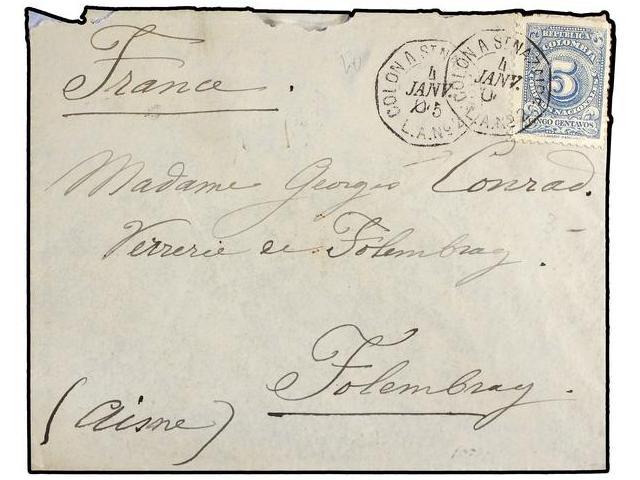 France.
COLON A ST N
4
JANV.
05
L.A. No 2
COLON A ST NAZAIRE
4
JANV.
0
L.A. No 2
REPUBLICA
COLOMBIA
5
CENTAVOS
Madame Georges Conrad.
Verrerie de Folembray.
Folembray.
(Aisne)